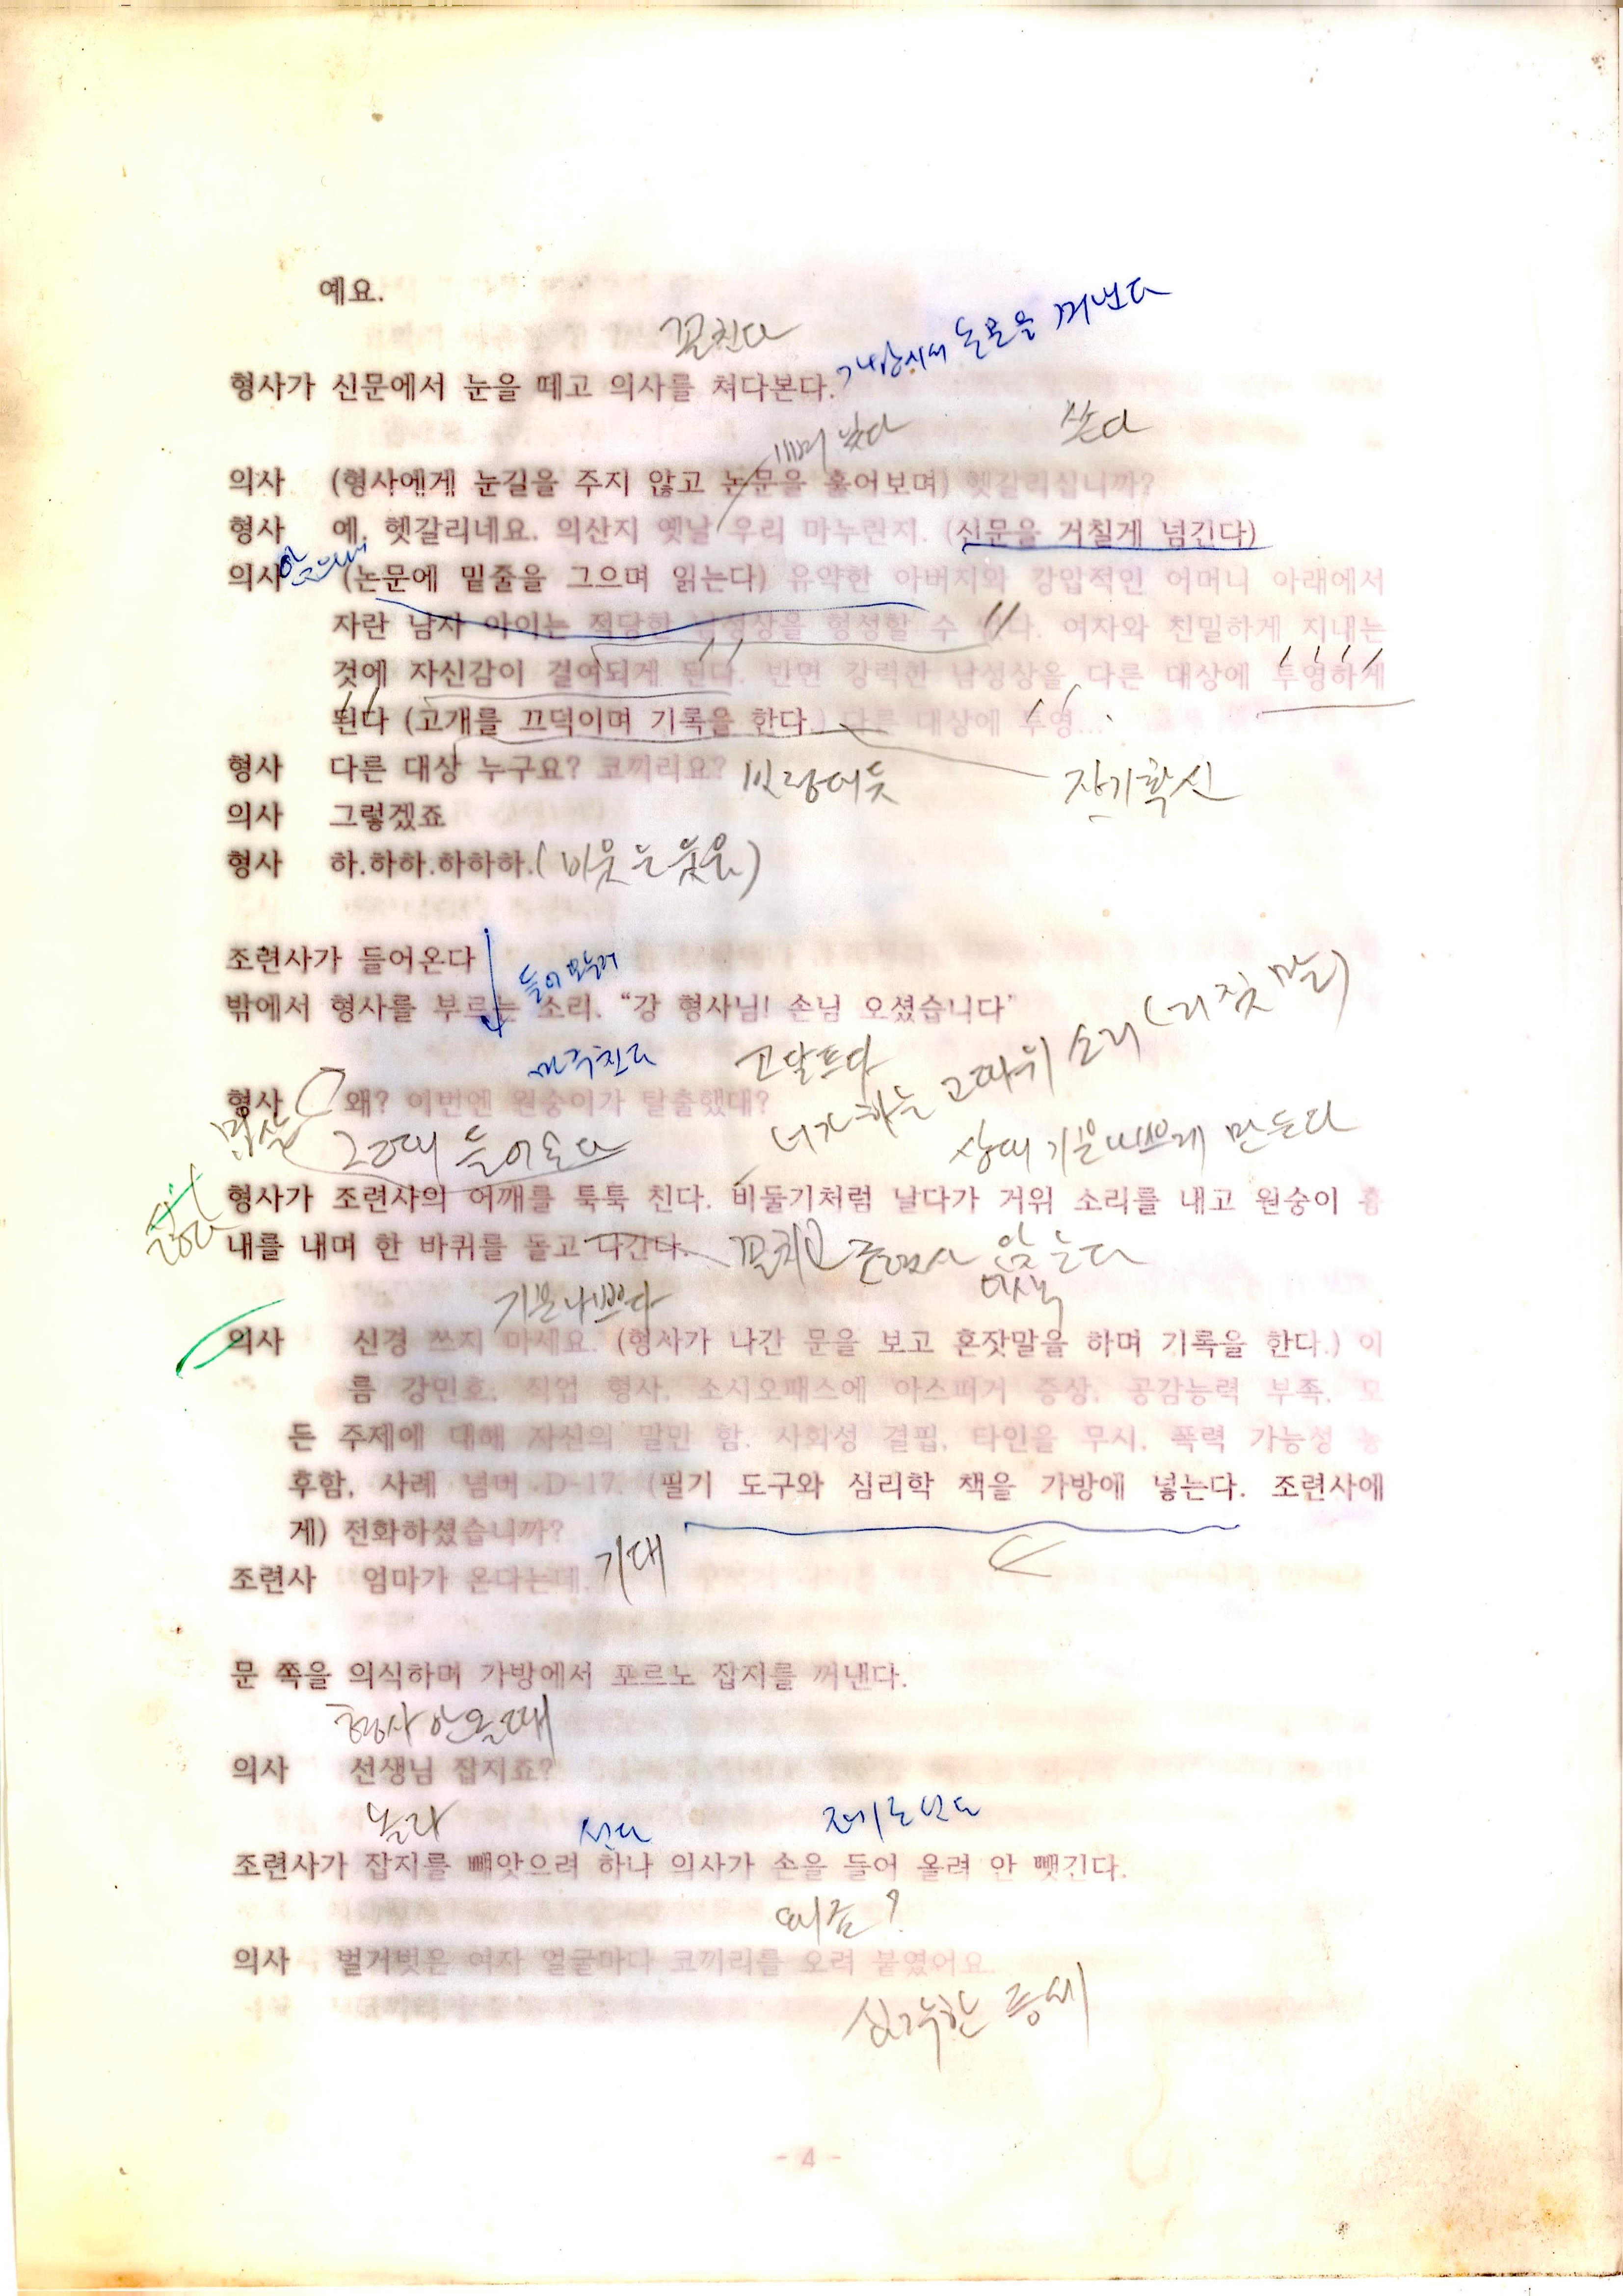 예요.
꼴친다
가방에서 논문을 꺼낸다
형사가 신문에서 눈을 떼고 의사를 쳐다본다.
쓴다
의사 (형사에게 눈길을 주지 않고 논문을 훑어보며) 헷갈리십니까?
형사 예, 헷갈리네요. 의산지 옛날 우리 마누란지. (신문을 거칠게 넘긴다)
의사 (논문에 밑줄을 그으며 읽는다) 유약한 아버지와 강압적인 어머니 아래에서
자란 남자 아이는 적당한 남성상을 형성할 수 없다. 여자와 친밀하게 지내는
것에 자신감이 결여되게 된다. 반면 강력한 남성상을 다른 대상에 투영하게
된다 (고개를 끄덕이며 기록을 한다.) 다른 대상에 투영...
형사 다른 대상 누구요? 코끼리요?
자기확신
의사 그렇겠죠
형사 하.하하.하하하.(비웃는 웃음)
조련사가 들어온다
밖에서 형사를 부르는 소리. “강 형사님! 손님 오셨습니다”
마주친다
고달프다
너가 하는 그따위 소리 (거짓말)
형사 왜? 이번엔 원숭이가 탈출했대?
그때 들어온다
상대 기분나쁘게 만든다
형사가 조련사의 어깨를 툭툭 친다. 비둘기처럼 날다가 거위 소리를 내고 원숭이 흉
내를 내며 한 바퀴를 돌고 나간다.
앉는다
기분나쁘다
의사 신경 쓰지 마세요. (형사가 나간 문을 보고 혼잣말을 하며 기록을 한다.) 이
름 강민호. 직업 형사. 소시오패스에 아스퍼거 증상. 공감능력 부족. 모
든 주제에 대해 자신의 말만 함. 사회성 결핍, 타인을 무시, 폭력 가능성 농
후함, 사례 넘버 D-17. (필기 도구와 심리학 책을 가방에 넣는다. 조련사에
게) 전화하셨습니까?
기대
조련사 엄마가 온다는데.
문 쪽을 의식하며 가방에서 포르노 잡지를 꺼낸다.
형사 안올때
의사 선생님 잡지죠?
놀라
선다
조련사가 잡지를 빼앗으려 하나 의사가 손을 들어 올려 안 뺏긴다.
의사 벌거벗은 여자 얼굴마다 코끼리를 오려 붙였어요.
심각한 증세
- 4 -